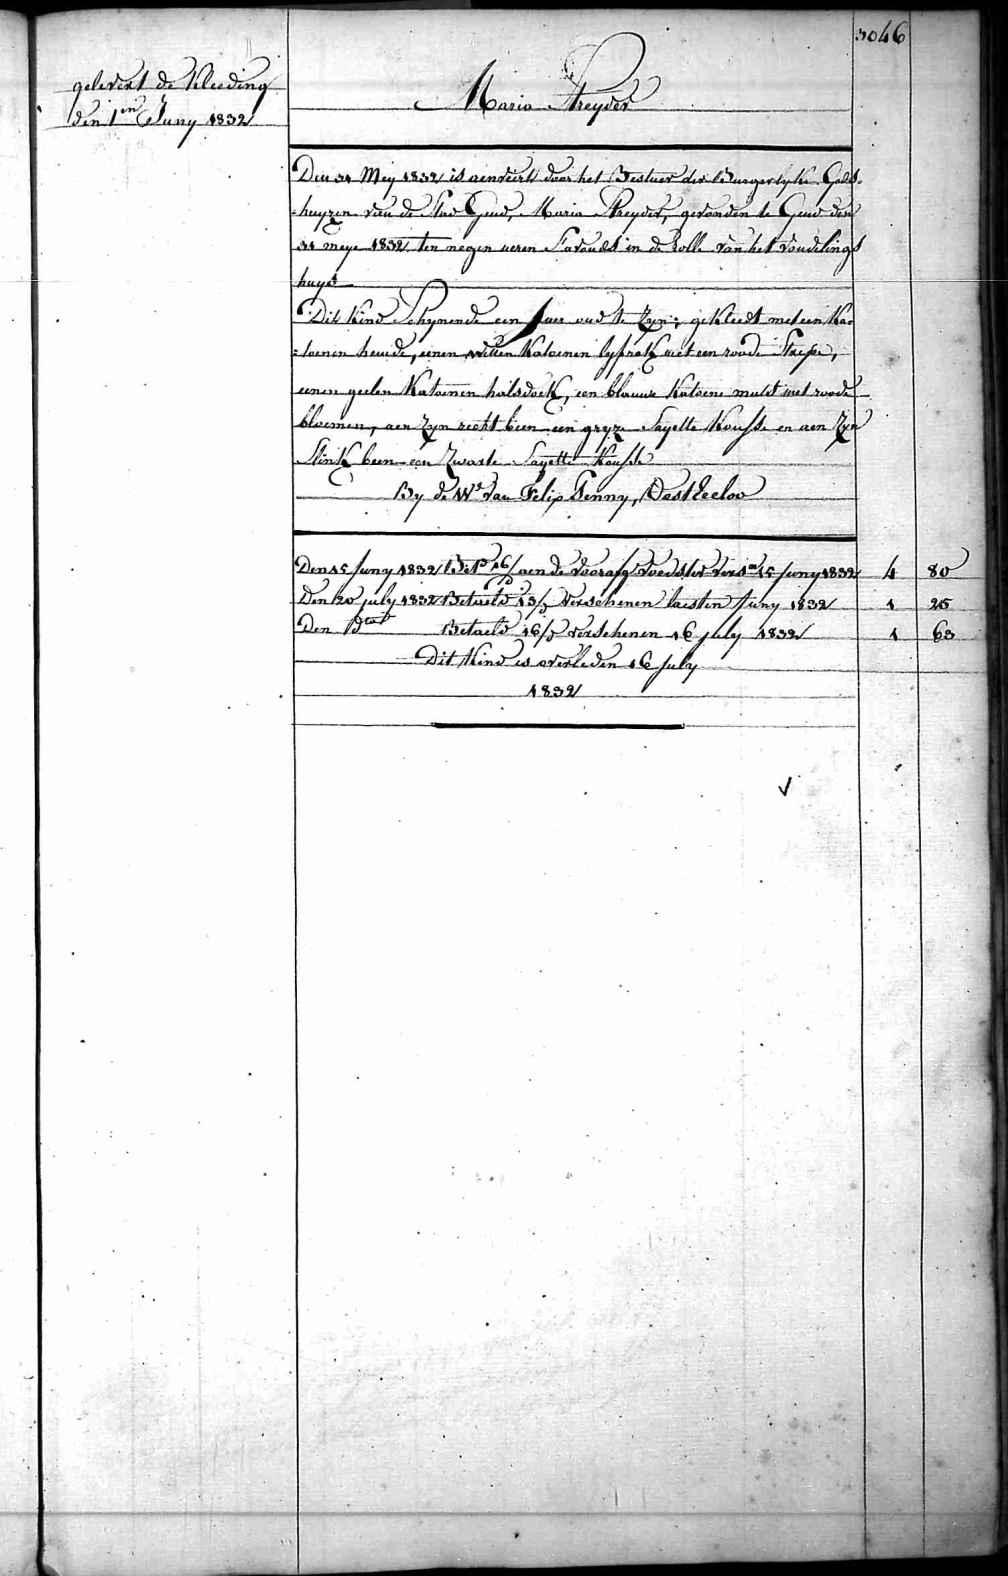 3046
gelevert de Kleeding
den 1en Juny 1832
Maria Preyder
Den 31 Mey 1832 is aenveert door het Bestuer der Burgerlyke Gods-
=huyzen van de Stad Gend, Maria Preyder, gevonden te Gend den
31 meye 1832 ten negen ueren s'avonds in de rolle van het vondelings
huys
Dit Kind Schynende een Jaer oud te Zyn; gekleedt met een Kat
=toenen hemde, eenen witten Katoenen lyfrok met een roode Strepe,
eenen geelen Katoenen halsdoek, een blauwe Katoene mutst met roode
bloemen, aen Zyn recht been een gryze Sayette Kousse en aen Zyn
Slink been een Zwarte Sayette Kousse
By de We van Felip Genny, Oost Eecloo
Den 15 Juny 1832 Bet 16/ aen de voorafg voedster vers 15 Juny 1832 4 80
Den 20 july 1832 Betaeld 13/ Verschenen laesten Juny 1832 1 25
Den Dito Betaeld 16/ verschenen 16 july 1832 1 63
Dit Kind is overleden 16 july
1832